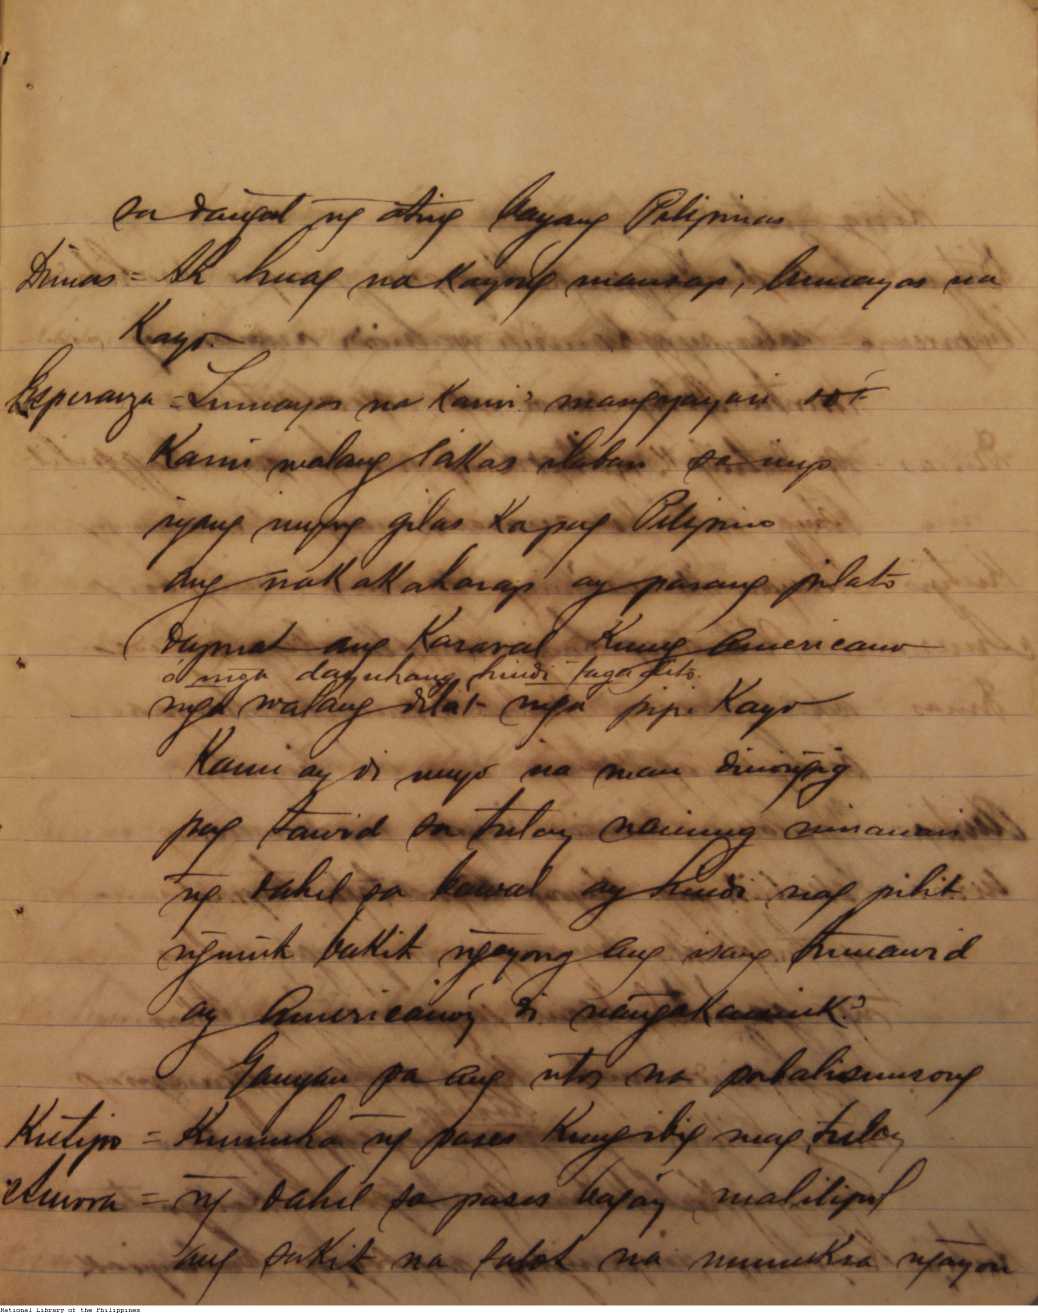 sa dangal ng ating bayang Pilipinas
Dimas = Ah huag na kayong mausap, lumayas na
Kayo.
Esperanza = Lumayas na kami? mangyayari
Kami walang lakas ilaban sa inyo
iyang inyong gilas kapag Pilipino
ang nakakaharap ay parang pilato
Dapuat ang Kaharap Kung Americano
o mga dayuhang hindi taga dito.
mga walang dila't mga pipi Kayo
Kami ay di ninyo na man
pag tawid sa tulay naming
ng dahil sa bawal ay hindi nag pilit
nguni't bakit ngayong ang isang tumawid
ay Americanoy di nangakaimik?
Ganyan pa ang utos na
Kutipio = Kumuha ng pases Kung ibig mag tuloy
Aurora = ng dahil sa pases bagay malilipol
ang sakit na salot na ngayon
National Library of the Philippines